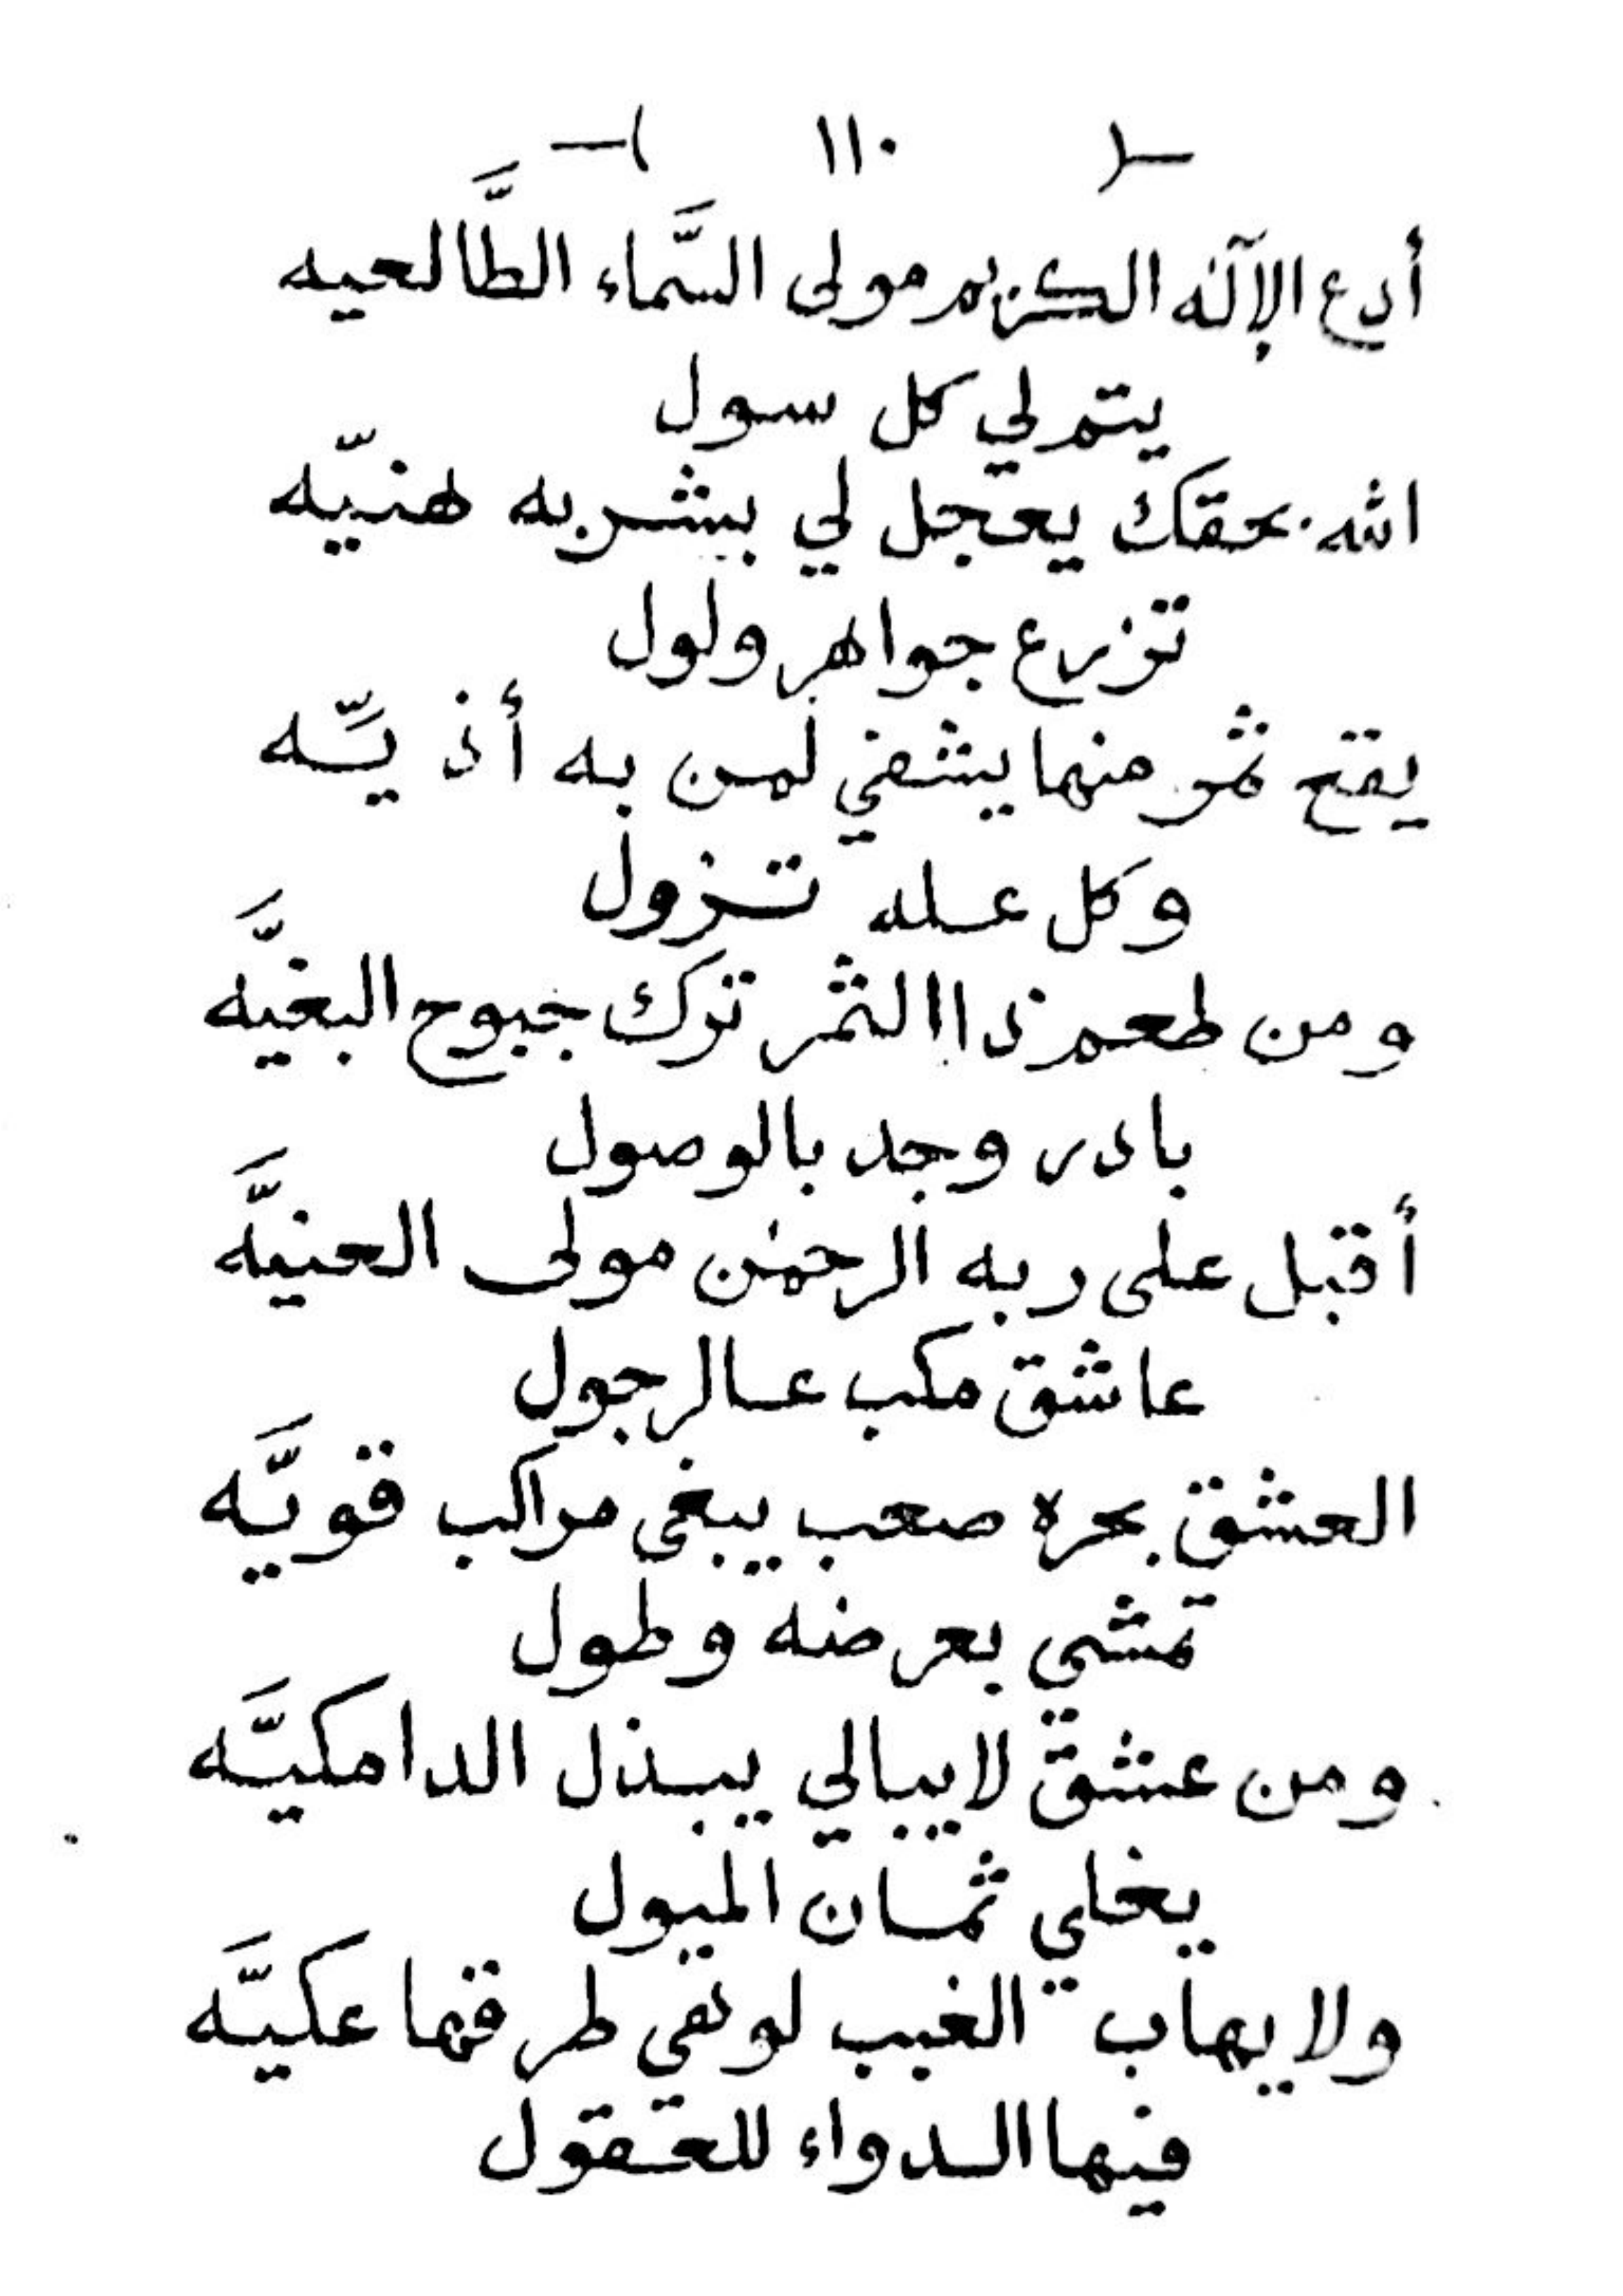 ١١٠
أدع الإآله الكريم مولى السَّماء الطَّالعيه
يتم لي كل سول
الله بحقك يعجل لي بشربه هنيّه
تزرع جواهر ولول
يفتح ثمر منها يشفي لمن به أذ يَّه
وكل عله تزول
ومن طعم ذا الثمر ترك جبوح البغيَّه
بادر وجد بالوصول
أقبل على ربه الرحمٰن مولى الحنيَّه
عاشق مكب عالرجول
العشق بحره صعب يبغى مراكب قويَّه
تمشي بعرضه وطول
ومن عشق لا يبالي يبذل الدامكيَّه
يخلي ثمان الميول
ولا يهاب الغبب لو في طرفها عكيَّه
فيها الدواء للعقول